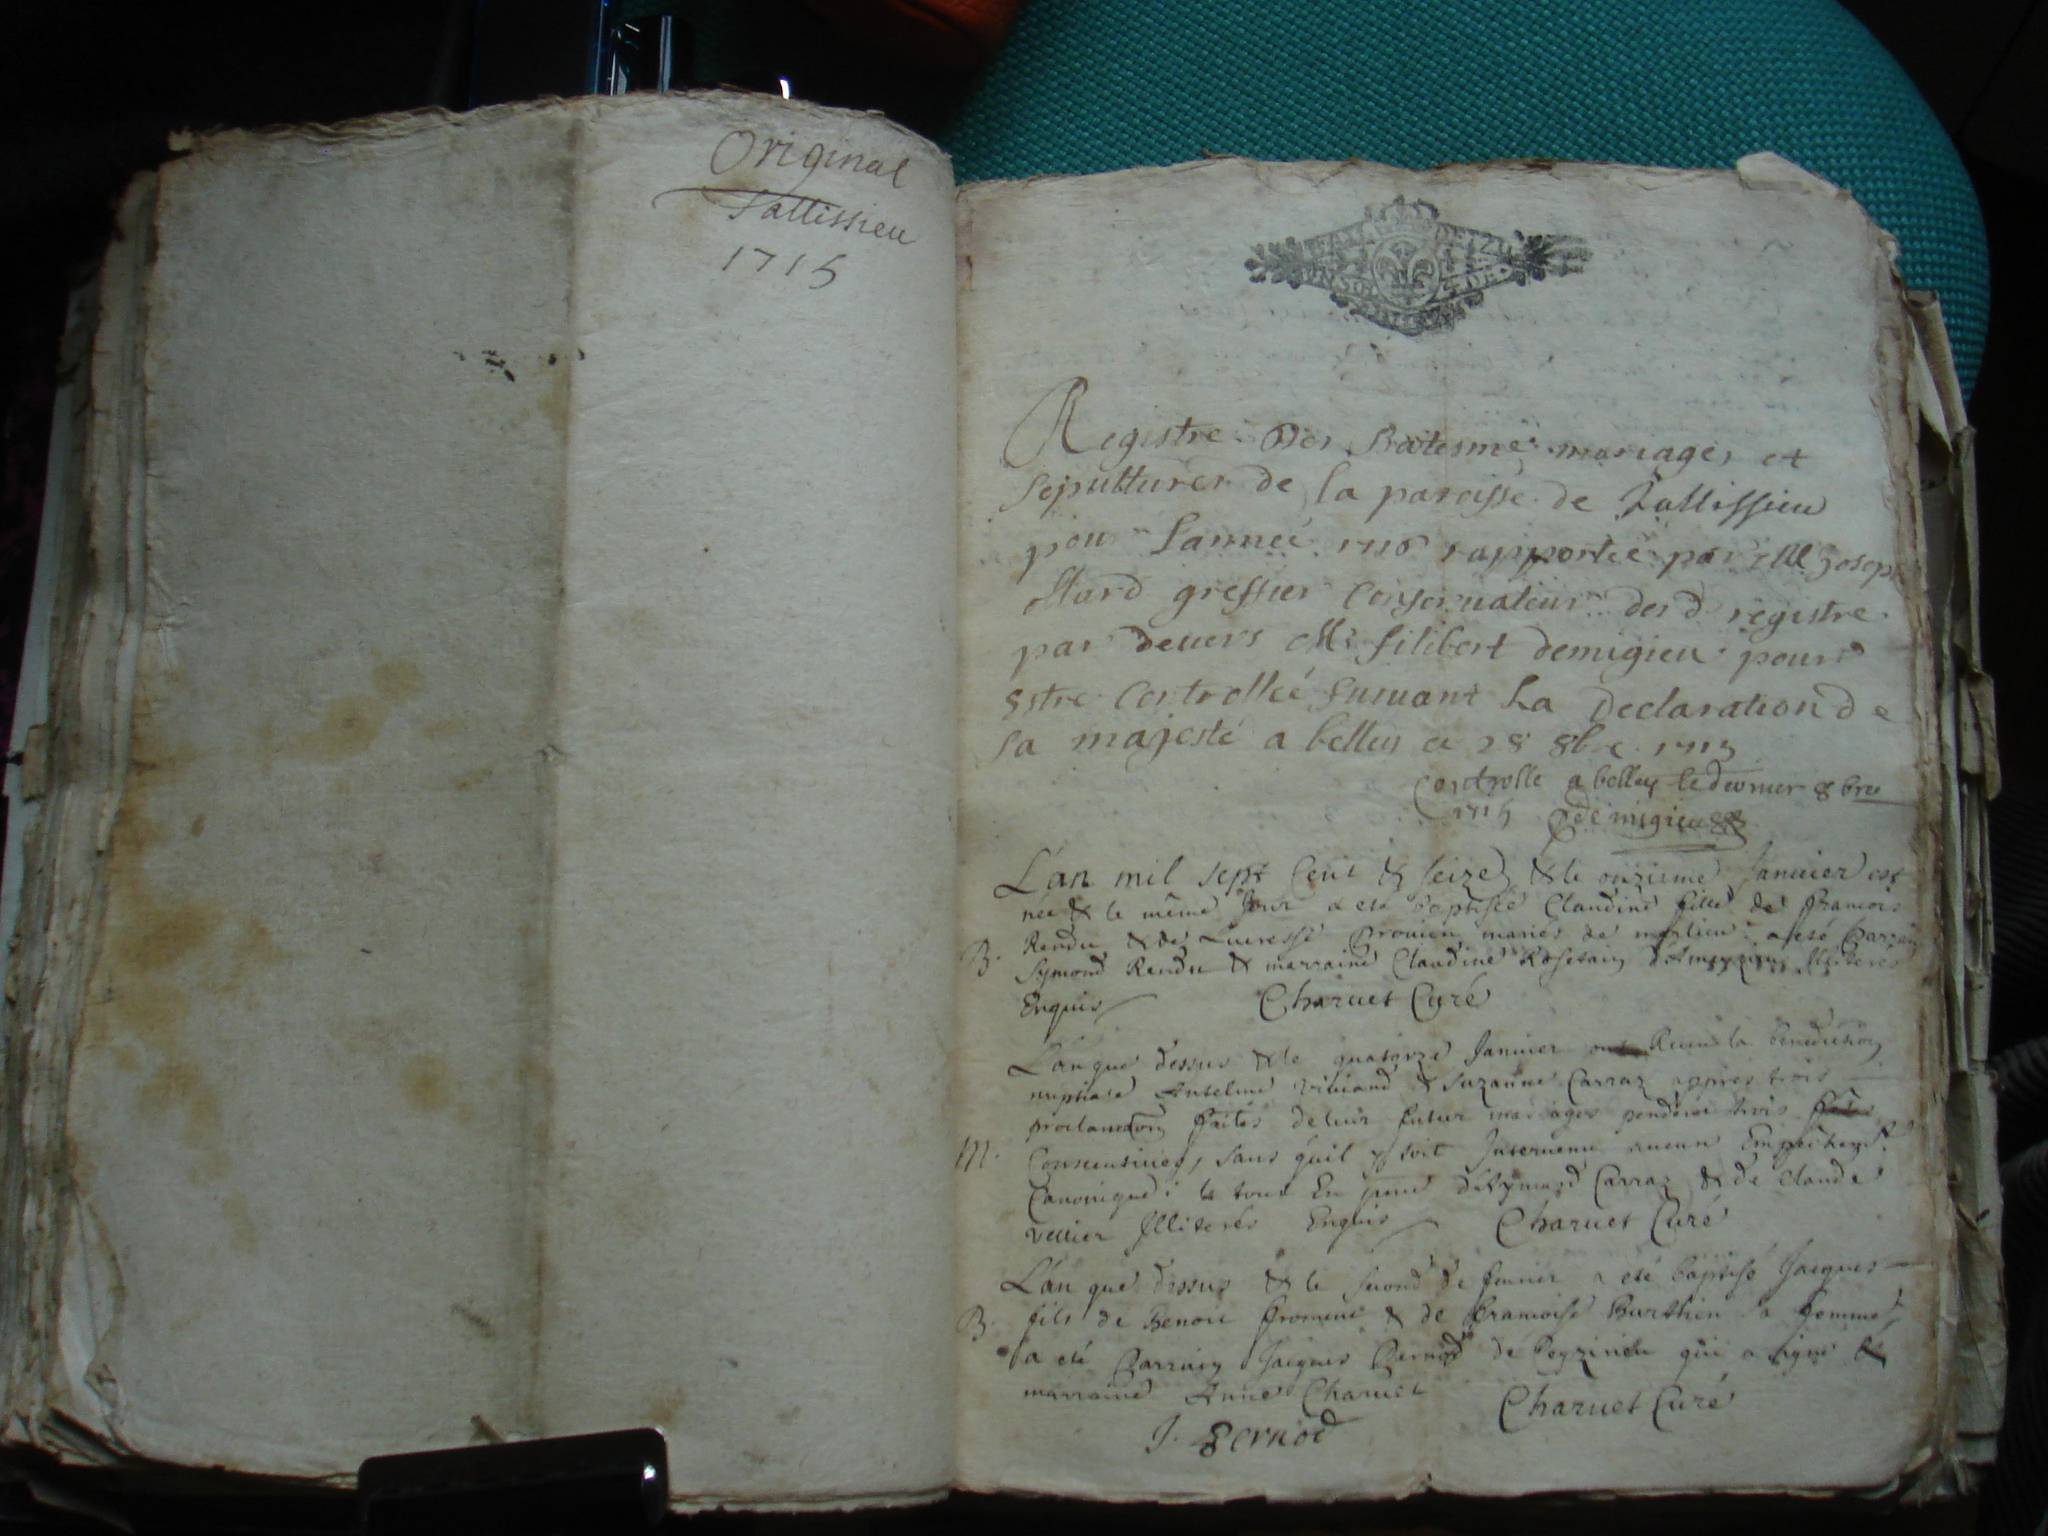 Original
Tallissieu
1715
Registre Des Batesme mariages et
sepultures de la paroisse de Tallissieu
pour Lannee 1716 rapportée par Me Joseph
greffier Conseruateur desd registre
par deuers Mr filibert demigieu pour
Estre Controllée suiuant La Declaration de
sa majesté a belley ce 28 8bre 1715
Controlle a belley le dernier 8bre
1715 demigieu
L'an mil sept Cent & seize & le onzieme Januier est
née & le même Jour a eté baptisée Claudine fille de francois
B. Rendu & de Lucresse mariés de a eté Parrain
Symond Rendu & marraine Claudine Illiterés
Enquis Charuet Curé
L'an que dessus & le quatorze Januier ont Receu la benediction
nuptiale Antelme & Suzanne Carraz apprés trois
proclamaons faites de leur futur mariages pendent trois
M. Consecutiues, sans qu'il y soit Interuenu aucun Empechemt
Canonique; le tout En pnce de Symond Carraz & de Claude
Illiterés Enquis Charuet Curé
L'an que dessus & le second de feurier a eté baptisé Jacques
B. fils de Benoit froment & de francoise Burthin sa femme,
a eté Parrain Jacques Bernod de Ceyzirieu qui a signé &
marraine Anne Charuet Charuet Curé
J. Bernod